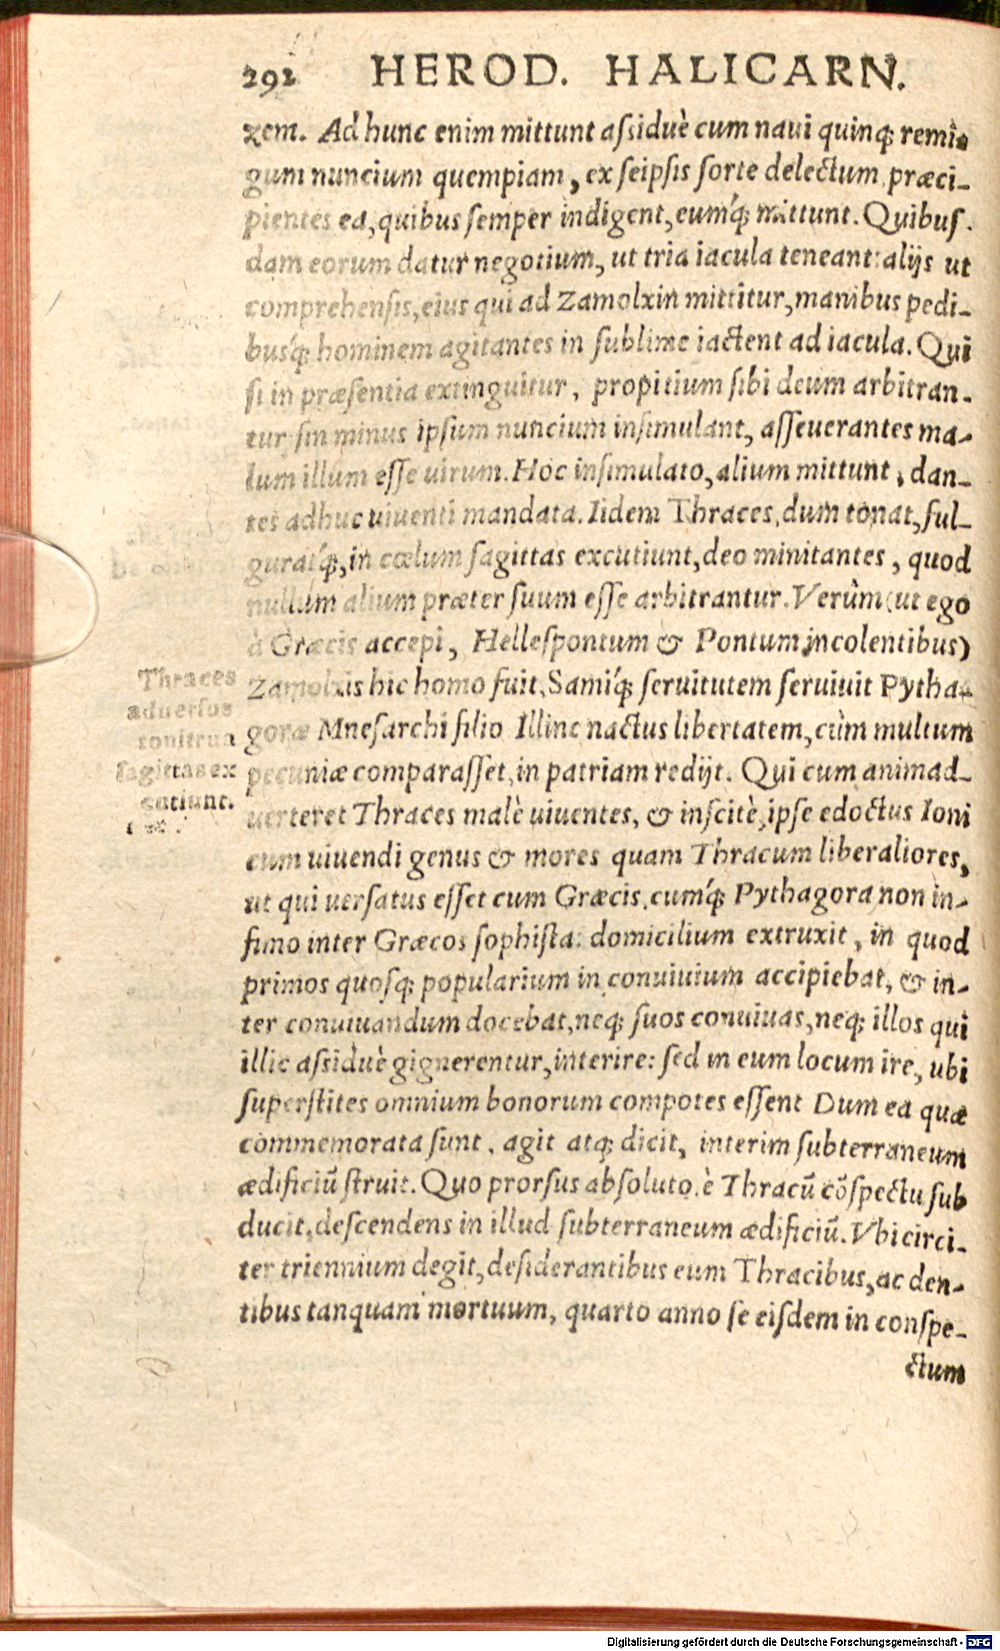 292 HEROD. HALICARN.
zem. Ad hunc enim mittunt aſsiduè cum naui quinq; remi-
gum nuncium quempiam, ex ſeipſis ſorte delectum præci-
pientes ea, quibus ſemper indigent, eumq́; mittunt. Quibuſ-
dam eorum datur negotium, ut tria iacula teneant: alijs ut
comprehenſis, eius qui ad Zamolxin mittitur, manibus pedi-
busq́; hominem agitantes in ſublime iactent ad iacula. Qui
ſi in præſentia extinguitur, propitium ſibi deum arbitran-
tur: ſin minus ipſum nuncium inſimulant, aſſeuerantes ma-
lum illum eſſe uirum. Hoc inſimulato, alium mittunt, dan-
tes adhuc uiuenti mandata. Iidem Thraces, dum tonat, ful-
guratq́;, in cœlum ſagittas excutiunt, deo minitantes, quod
nullum alium præter ſuum eſſe arbitrantur. Verùm (ut ego
à Græcis accepi, Helleſpontum & Pontum incolentibus)
Zamolxis hic homo fuit, Samiq́; ſeruitutem ſeruiuit Pytha-
goræ Mneſarchi filio Illinc nactus libertatem, cùm multum
pecuniæ comparaſſet, in patriam redijt. Qui cum animad-
uerteret Thraces malè uiuentes, & inſcitè, ipſe edoctus Ioni
cum uiuendi genus & mores quam Thracum liberaliores,
ut qui uerſatus eſſet cum Græcis, cumq́; Pythagora non in-
fimo inter Græcos ſophiſta: domicilium extruxit, in quod
primos quoſq; popularium in conuiuium accipiebat, & in-
ter conuiuandum docebat, neq; ſuos conuiuas, neq; illos qui
illic aſsiduè gignerentur, interire: ſed in eum locum ire, ubi
ſuperſtites omnium bonorum compotes eſſent Dum ea quæ
commemorata ſunt, agit atq; dicit, interim ſubterraneum
ædificiũ ſtruit. Quo prorſus abſoluto, è Thracũ cõſpectu ſub
ducit, deſcendens in illud ſubterraneum ædificiũ. Vbi circi-
ter triennium degit, deſiderantibus eum Thracibus, ac den-
tibus tanquam mortuum, quarto anno ſe eiſdem in conſpe-
ctum
Thraces
aduerſus
tonitrua
ſagittas ex
cutiunt.
Digitalisierung gefördert durch die Deutsche Forschungsgemeinschaft - DFG